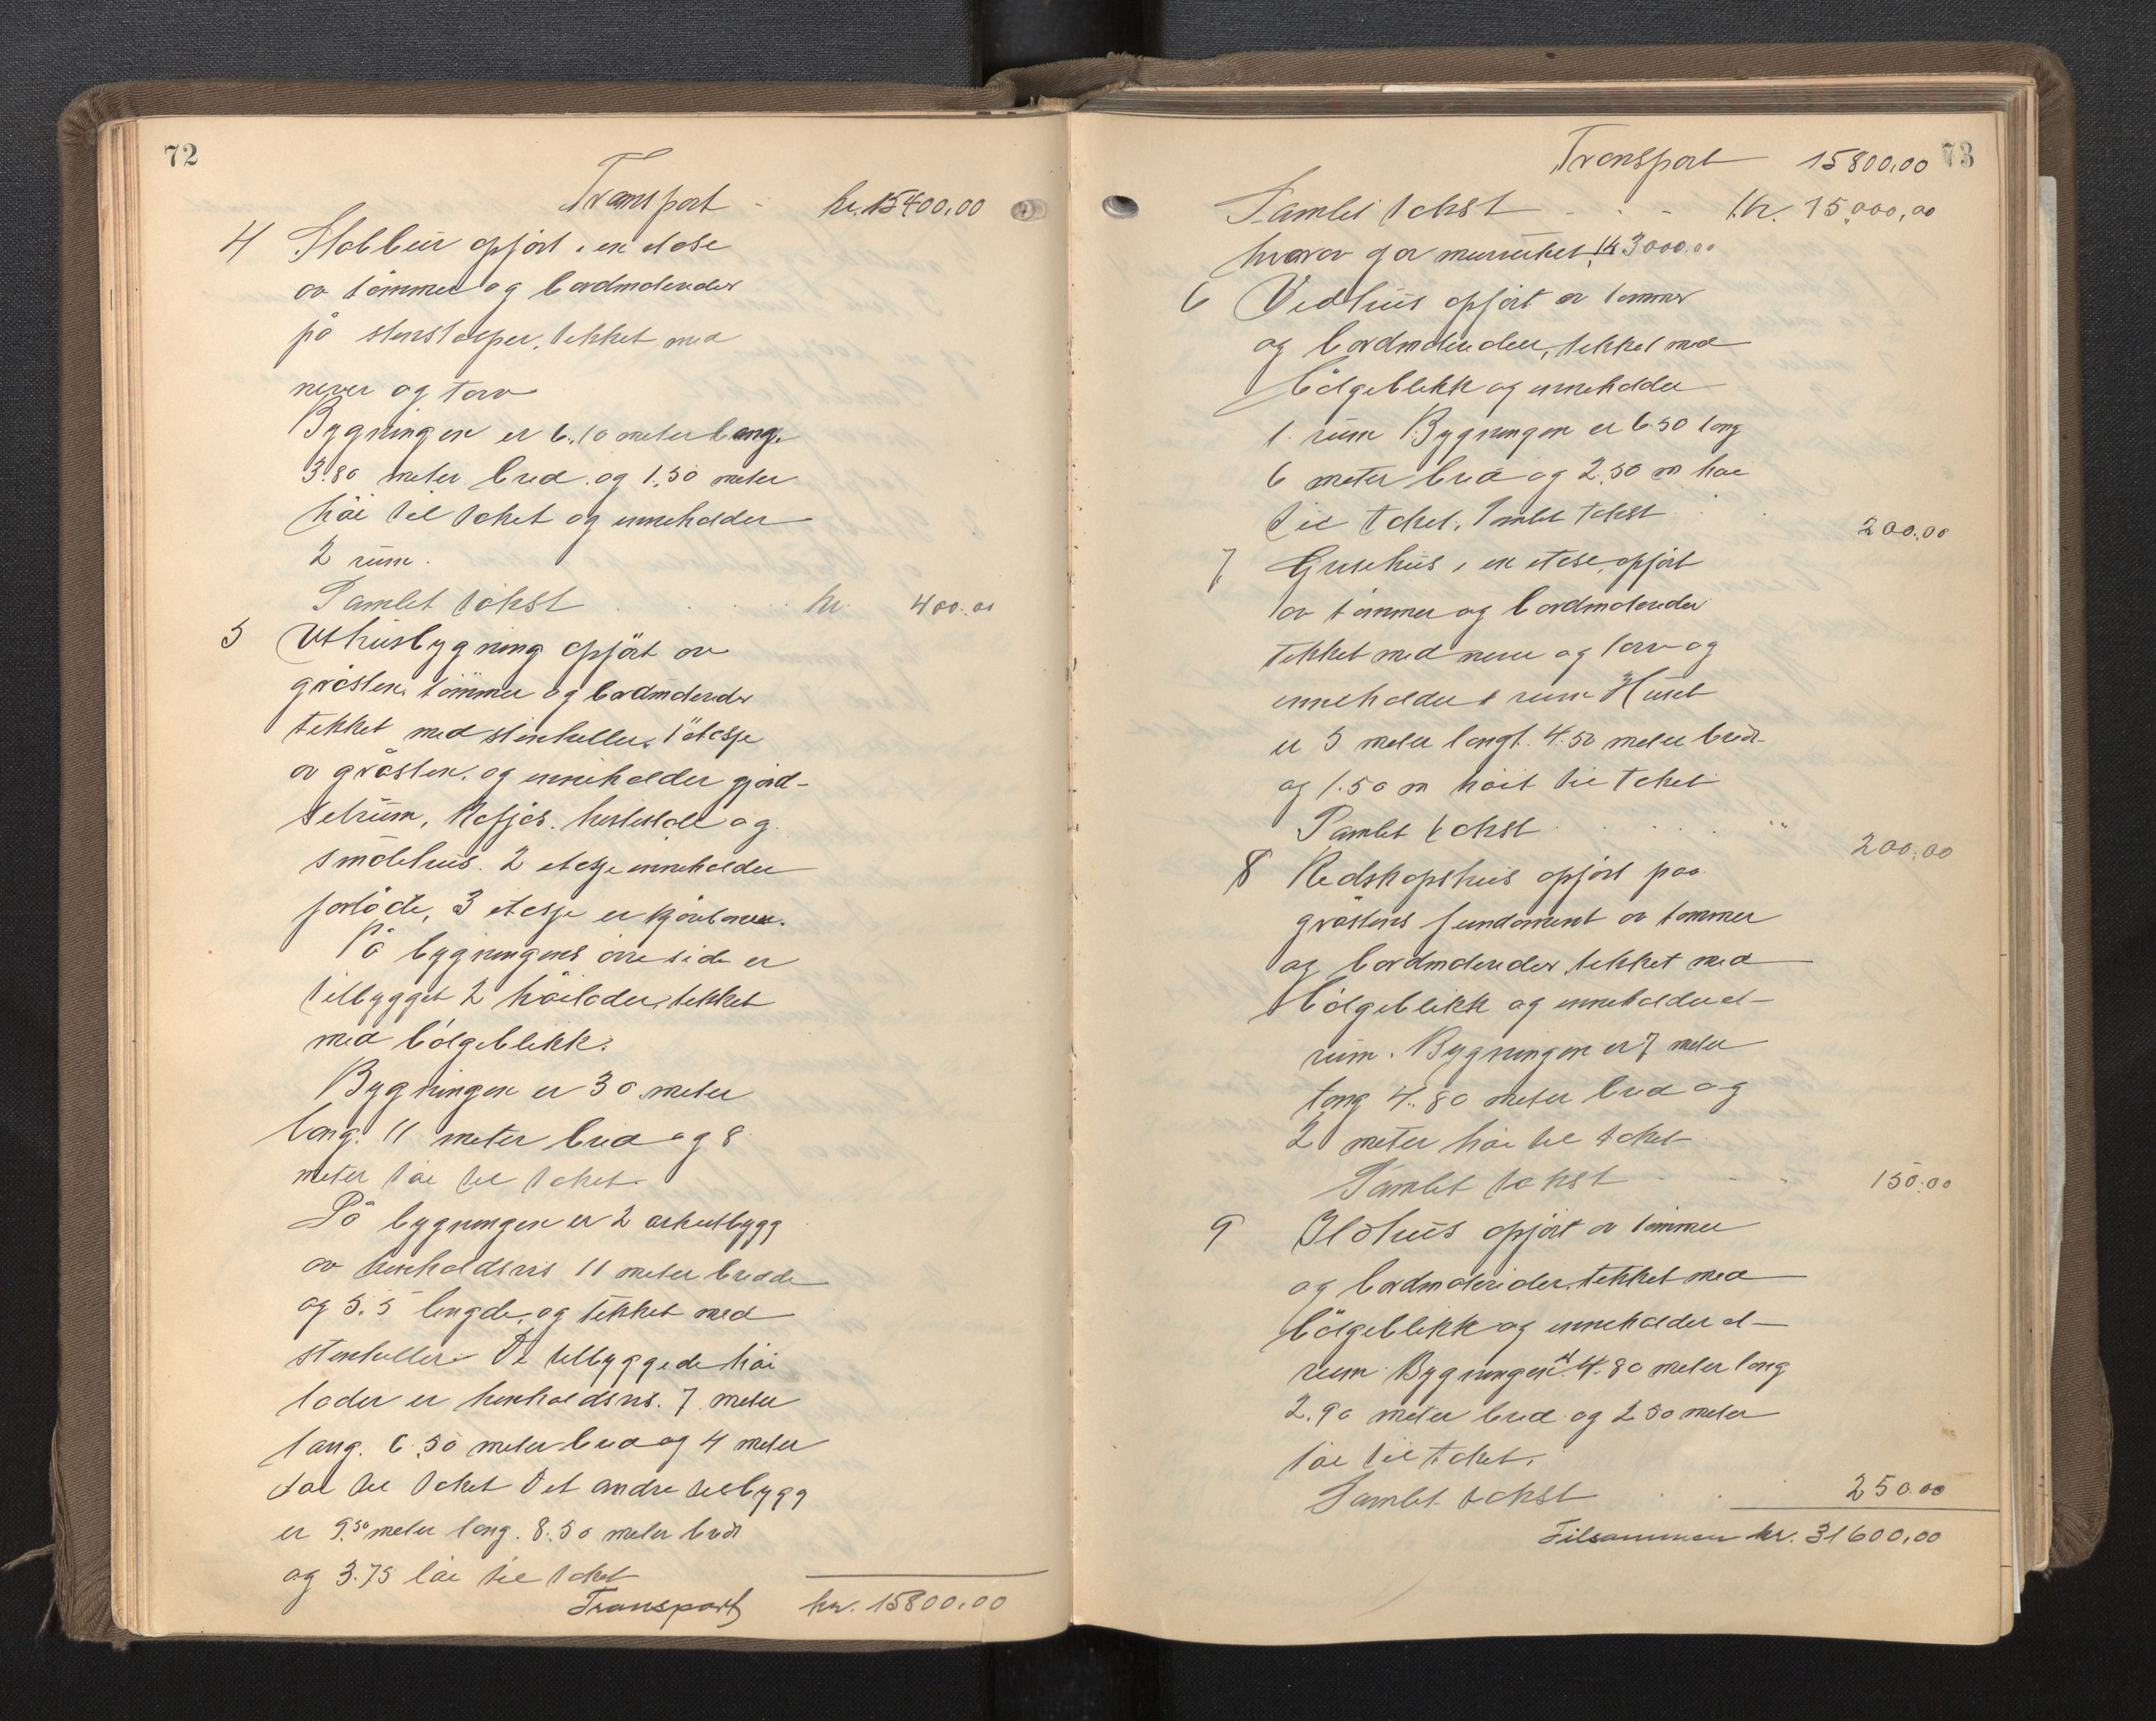 72
Transport - kr. 15400,00
4 Stabbur opført i en etase
av tømmer og bordmaterialer
på stenstolper, tekket med
never og torv
Bygningen er 6,10 meter lang,
3.80 meter bred og 1,50 meter
høi til taket og inneholder
2 rum.
Samlet takst kr. 400.00
5 Uthusbygning opført av
gråsten, tømmer og bordmaterialer
tekket med stenheller, 1 etasje
av gråsten, og inneholder gjød-
selrum, kofjøs, hestestall og
småfehus. 2 etasje inneholder
forlåde, 3 etasje er kjørelåve.
På bygningens øvre side er
tilbygget 2 høilader, tekket
med bølgeblikk.
Bygningen er 30 meter
lang. 11 meter bred og 8
meter høi til taket.
På bygningen er 2 arkutbygg
av henholdsvis 11 meter bredde
og 5.5 lengde, og tekket med
stenheller. De tilbyggede høi
lader er henholdsvis. 7 meter
lang. 6.50 meter bred og 4 meter
høi til taket Det andre tilbygg
er 9.50 meter lang. 8.50 meter bredt
og 3.75 høi til taket
Transport kr. 15800,00
73
Transport 15800,00
Samlet takst - - - kr. 15,000,00
hvorav for murverket kr 3000.00
6 Vedhus opført av tømmer
og bordmaterialer, tekket med
bølgeblikk og inneholder
1. rum Bygningen er 6.50 lang
6 meter bred og 2.50 m høi
til taket. Samlet takst 200.00
7 Gruehus, i en etase, opført
av tømmer og bordmaterialer
tekket med never og torv og
inneholder 1 rum Huset
er 5 meter langt. 4.50 meter bredt
og 1.50 m høit til taket
Samlet takst " 200.00
8 Redskapshus opført paa
gråstens fundament av tømmer
og bordmaterialer, tekket med
bølgeblikk og inneholder et
rum. Bygningen er 7 meter
lang 4.80 meter bred og
2 meter høi til taket
Samlet takst - - - 150.00
9 Ildhus opført av tømmer
og bordmaterialer, tekket med
bølgeblikk og inneholder et
rum Bygningen er 4.80 meter lang
2.90 meter bred og 2 50 meter
høi til taket.
Samlet takst 250.00
Tilsammen kr. 31600,00